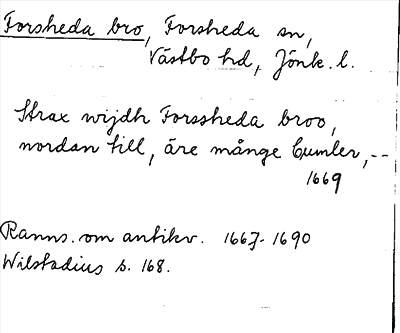 Forsheda bro, Forsheda sn,
Västbo hd, Jönk. l.
Strax wijdh Forssheda broo,
nordan till, äre månge Cumler, --
1669
Ranns. om antikv. 1667-1690
Wilstadius s. 168.